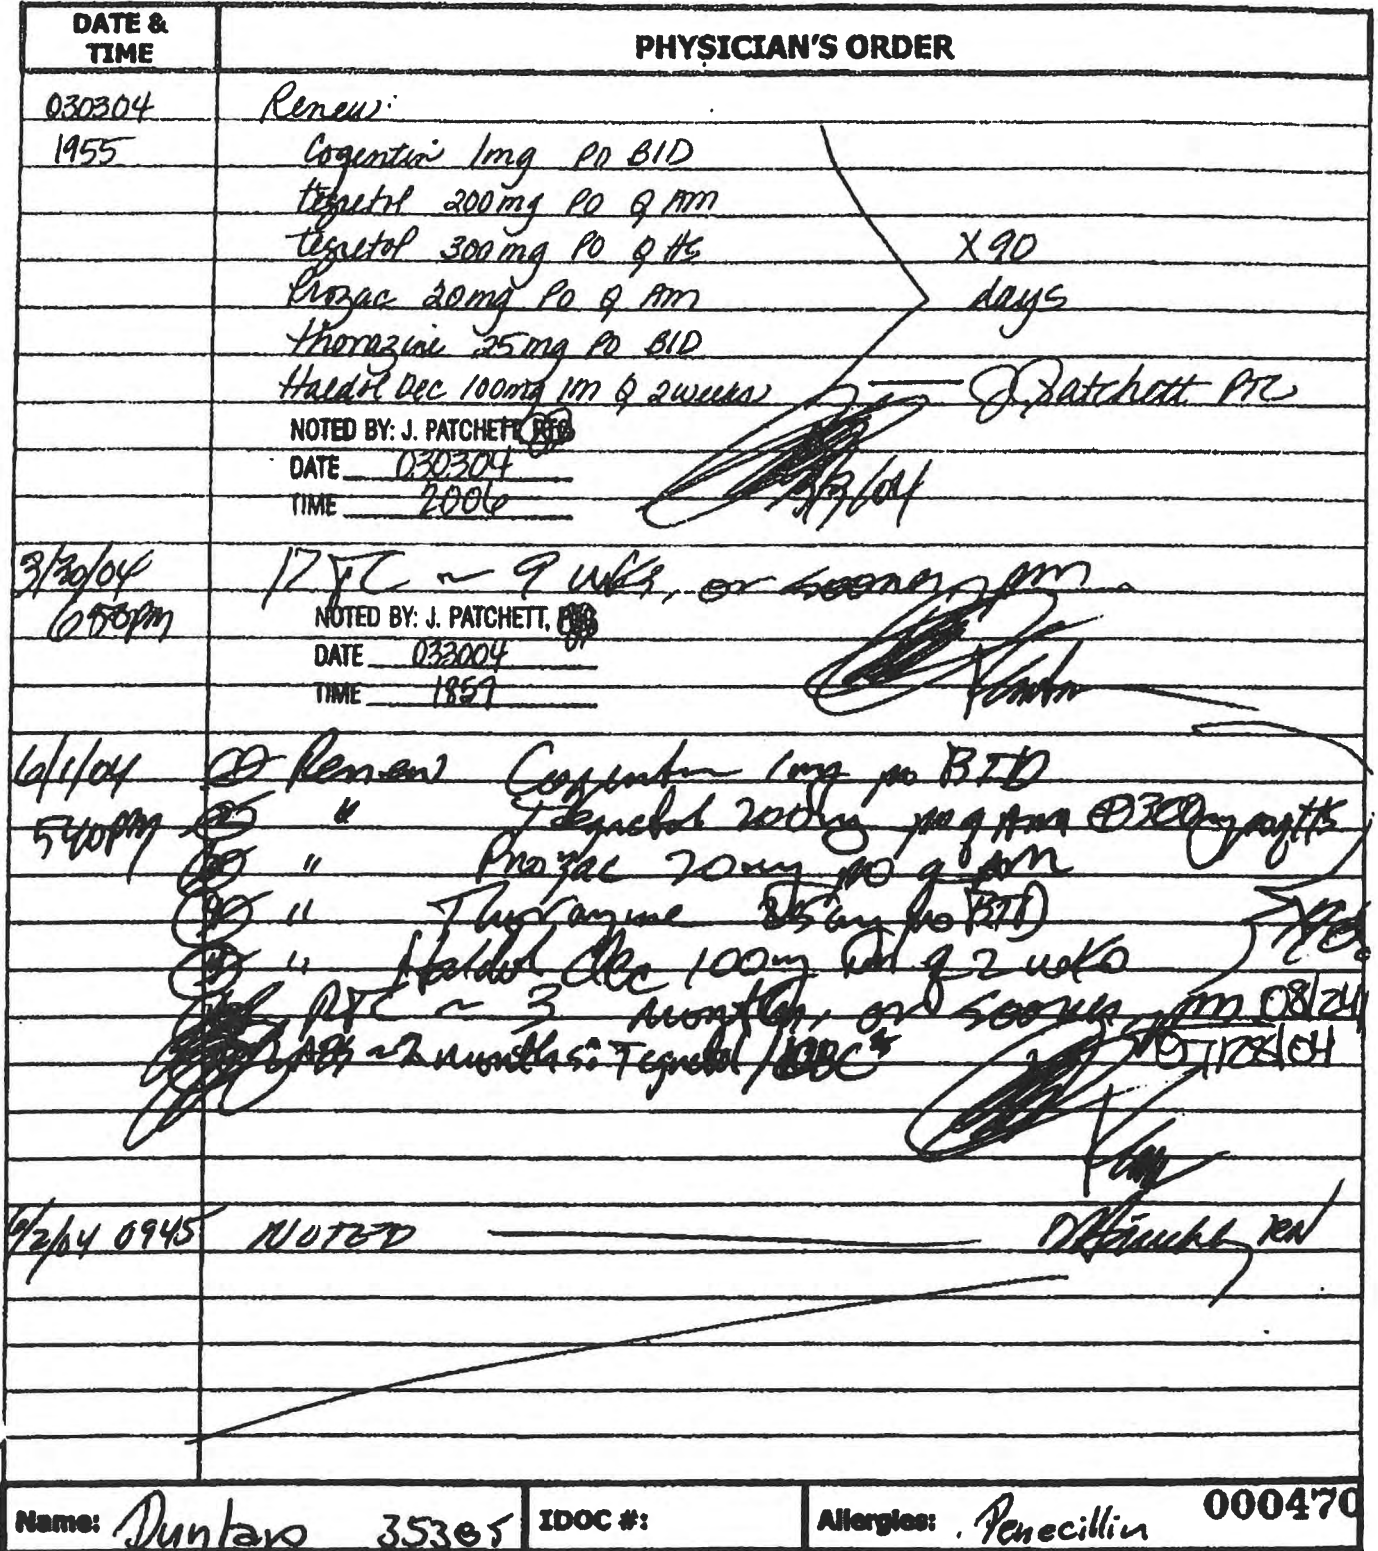 DATE & TIME
PHYSICIAN'S ORDER
030304 Renew:
1955 Cogentin 1mg PO BID
tegretol 200mg PO Q AM
tegretol 300mg PO Q HS X90
Prozac 20mg PO Q AM days
thorazine 25mg PO BID
Haldol Dec 100mg IM Q 2 weeks J. Patchett
NOTED BY: J. PATCHETT
DATE 030304
TIME 2006 3/3/04
3/30/04 RTC ~ 9 wks, or sooner, prn
NOTED BY: J. PATCHETT,
DATE 033004
TIME 1857
6/1/04 Renew Cogentin 1mg po BID
540pm " Tegretol 200mg po q Am 300mg po q HS
" Prozac 20mg po q AM
" Thorazine po BID
" Haldol dec 100mg IM q 2 wks
RTC ~ 3 months, or sooner, prn 08/24
LABS ~ 2 months: Tegretol / CBC 07/28/04
6/2/04 0945 NOTED RN
Name: 35385 IDOC #: Allergies: Penecillin 000470